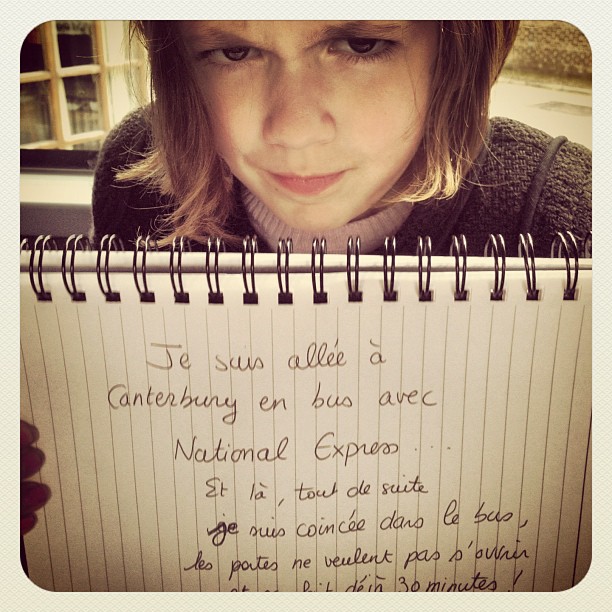 Je suis allée à
Canterbury en bus avec
National Express....
Et là, tout de suite
je suis coincée dans le bus,
les portes ne veulent pas s'ouvrir
et fait déjà 30 minutes !